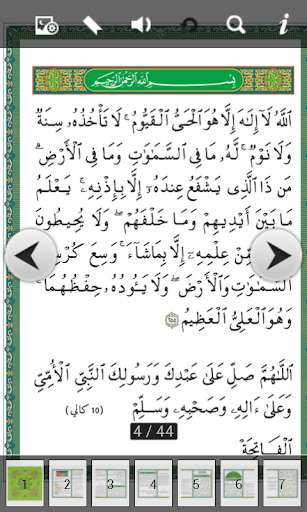 بِسْمِ ٱللَّهِ ٱلرَّحْمَٰنِ ٱلرَّحِيمِ
ٱللَّهُ لَآ إِلَٰهَ إِلَّا هُوَ ٱلْحَىُّ ٱلْقَيُّومُ ۚ لَا تَأْخُذُهُۥ سِنَةٌ
وَلَا نَوْمٌ ۚ لَّهُۥ مَا فِى ٱلسَّمَٰوَٰتِ وَمَا فِى ٱلْأَرْضِ ۗ
مَن ذَا ٱلَّذِى يَشْفَعُ عِندَهُۥٓ إِلَّا بِإِذْنِهِۦ ۚ يَعْلَمُ
مَا بَيْنَ أَيْدِيهِمْ وَمَا خَلْفَهُمْ ۖ وَلَا يُحِيطُونَ
مِّنْ عِلْمِهِۦٓ إِلَّا بِمَا شَآءَ ۚ وَسِعَ
ٱلسَّمَٰوَٰتِ وَٱلْأَرْضَ ۖ وَلَا يَـُٔودُهُۥ حِفْظُهُمَا ۚ
وَهُوَ ٱلْعَلِىُّ ٱلْعَظِيمُ
ٱللَّهُمَّ صَلِّ عَلَىٰ عَبْدِكَ وَرَسُولِكَ ٱلنَّبِيِّ ٱلْأُمِّيِّ
وَعَلَىٰ ءَالِهِۦ وَصَحْبِهِۦ وَسَلِّمْ (10 كالي)
4 / 44
ٱلْفَاتِحَةْ
1 2 3 4 5 6 7